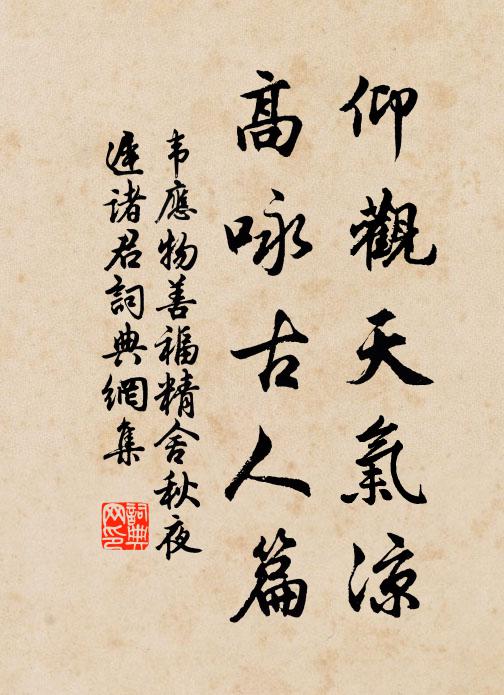 仰觀天氣涼
高咏古人篇
韦應物善福精舍秋夜
遲诸君詞典網集
詞典网印